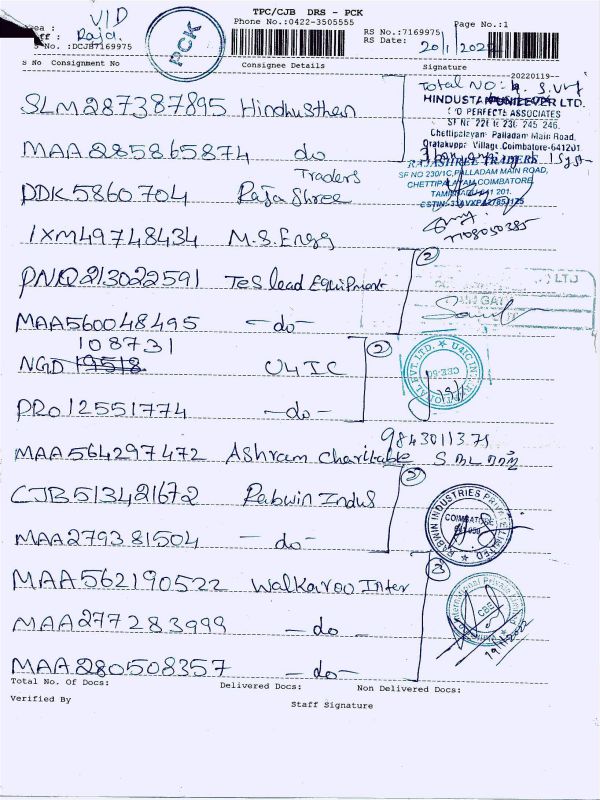 TPC/CJB DRS - PCK
VID
Phone No.:0422-3505555
Page No.:1
Area :
Raja.
PCK
RS No.:7169975
RS Date: 20/1/2022
S No. :DCJB7169975
S No Consignment No Consignee Details Signature
--20220119--
Total No: 4
SLM287387895 Hindusthan
HINDUSTAN UNILEVER LTD.
C/O PERFECTE ASSOCIATES
Chettipalayam Palladam Main Road,
Village, Coimbatore-641201
MAA285865874 do
RAJASHREE TRADERS
SF NO 230/1C, PALLADAM MAIN ROAD,
CHETTIPALAYAM, COIMBATORE,
Traders
DDK5860704 Raja Shree
7708050385
IXM49748434 M.S. Engg
PNQ213022591 Tes lead Equipment
2
LTD
MAA560048495 -do-
108731
NGD 19518 U4IC
2
PVT. LTD. U4IC
PRO12551774 -do-
9843011371
MAA564297472 Ashram Charitable
CJB513421672 Rabwin Indus
2
RABWIN INDUSTRIES PRIVATE LIMITED
COIMBATORE
MAA279381504 -do-
MAA562190522 Walkaroo Inter
3
International Private Limited
CBE
MAA277283999 -do-
19/1/2022
MAA280508357 -do-
Total No. Of Docs: Delivered Docs: Non Delivered Docs:
Verified By Staff Signature